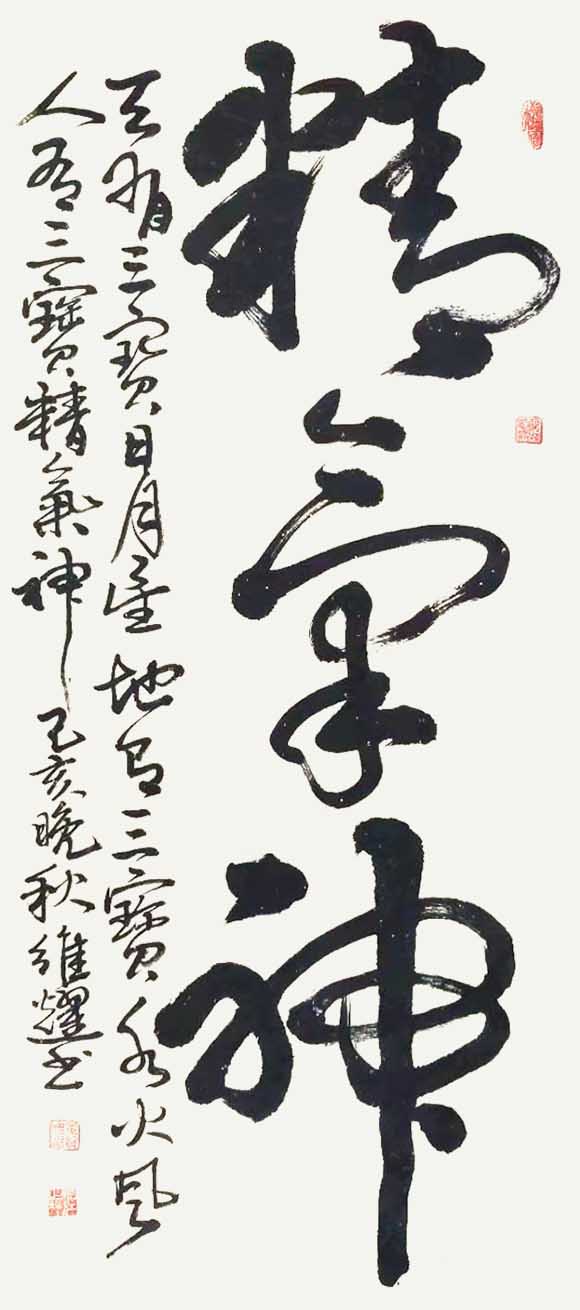 精氣神
天有三寶日月星地有三寶水火風
人有三寶精氣神己亥晚秋維耀書